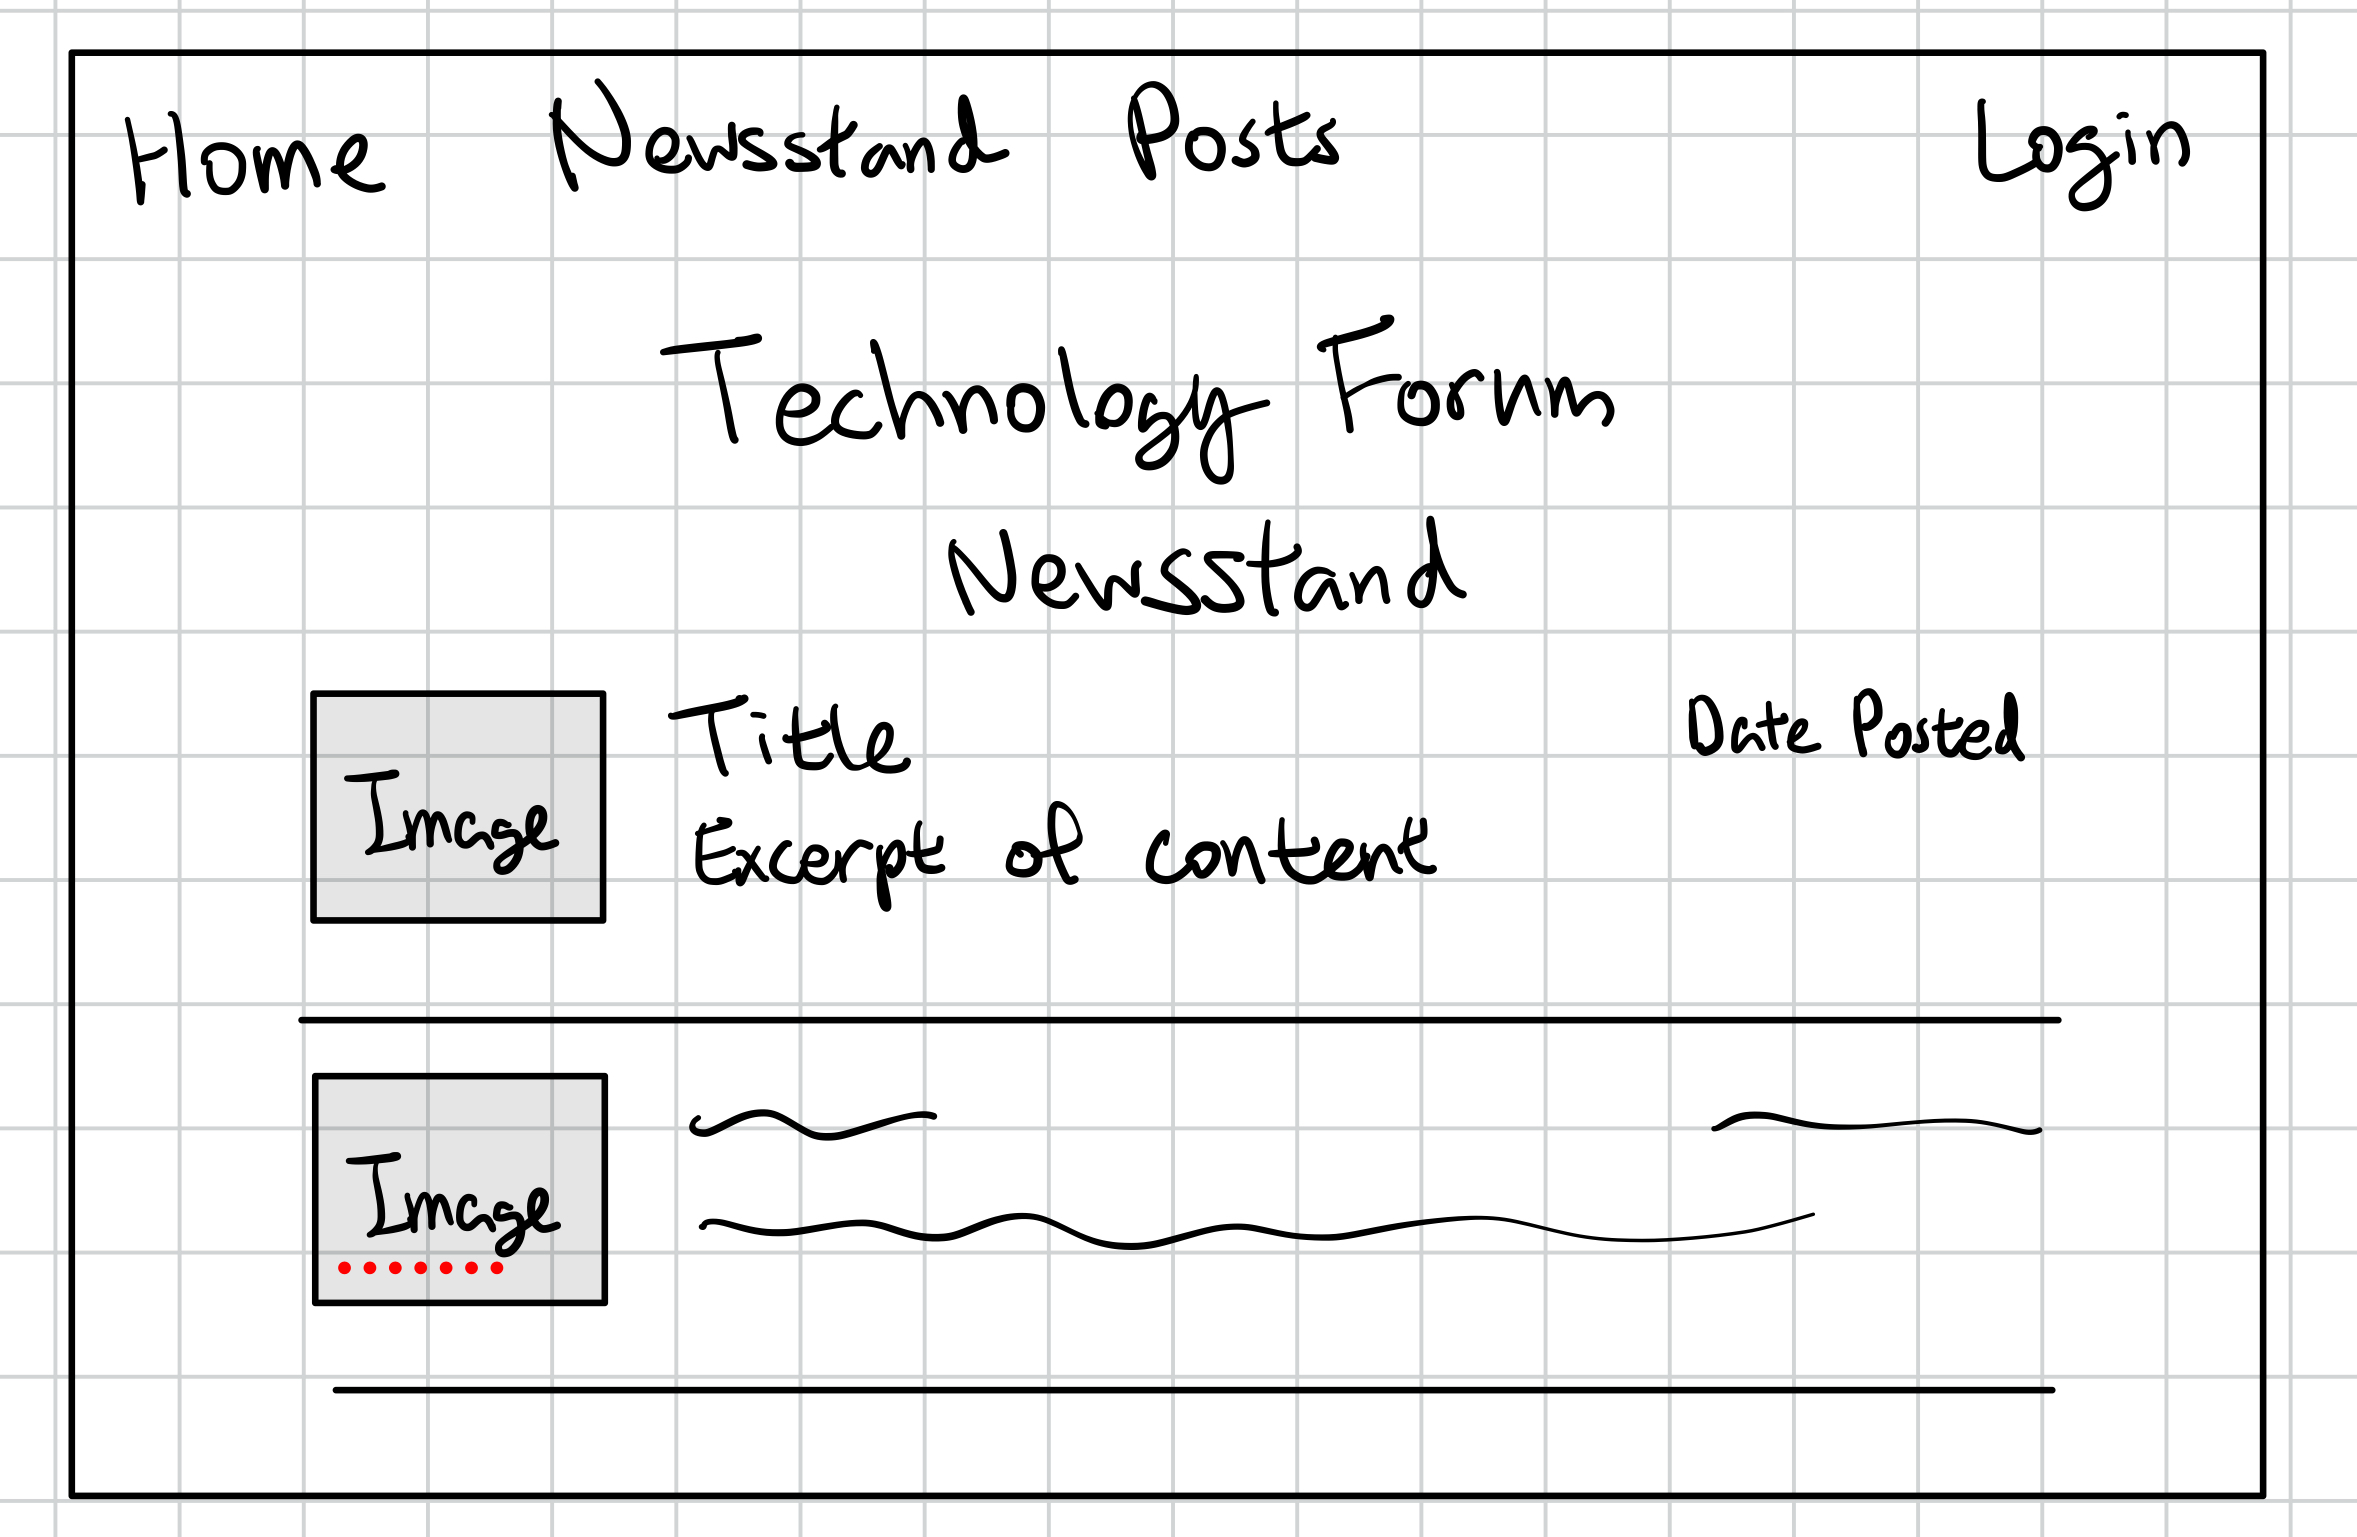 Home Newsstand Posts Login
Technology Forum
Newsstand
Title Date Posted
Image
Excerpt of content
Image